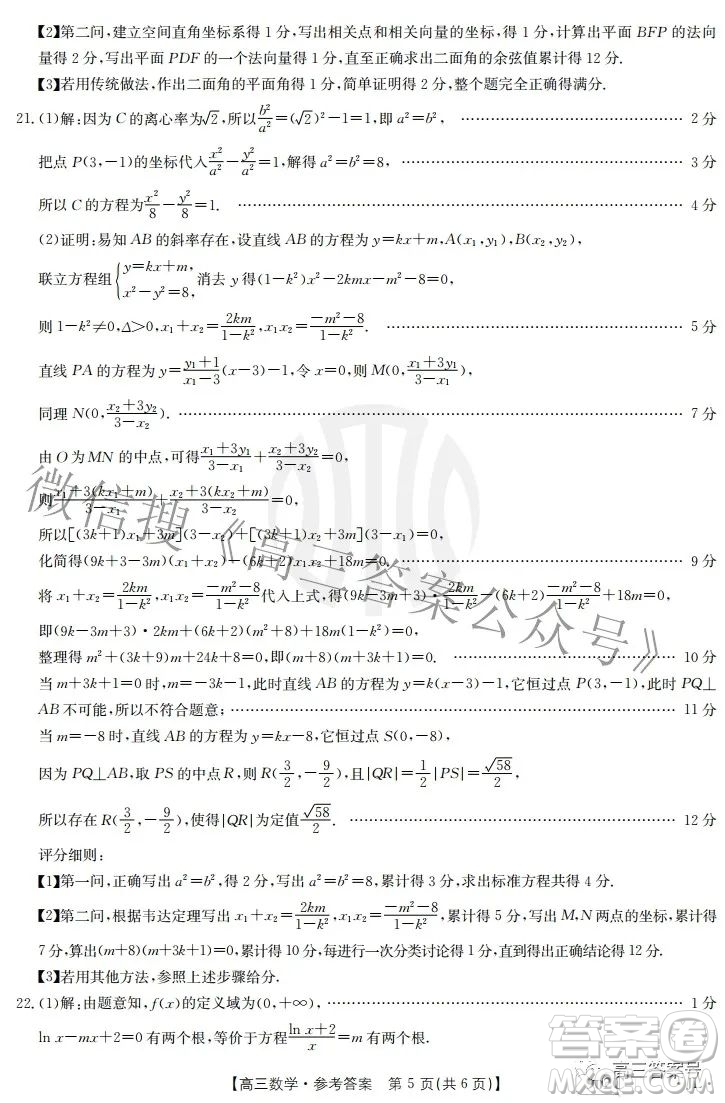 【2】第二问,建立空间直角坐标系得1分,写出相关点和相关向量的坐标,得1分,计算出平面BFP的法向
量得2分,写出平面PDF的一个法向量得1分,直至正确求出二面角的余弦值累计得12分.
【3】若用传统做法,作出二面角的平面角得1分,简单证明得2分,整个题完全正确得满分.
21.(1)解:因为C的离心率为√2,所以b²/a²=(√2)²-1=1,即a²=b², ………… 2分
把点P(3,-1)的坐标代入x²/a²-y²/a²=1,解得a²=b²=8, ………… 3分
所以C的方程为x²/8-y²/8=1. ………… 4分
(2)证明:易知AB的斜率存在,设直线AB的方程为y=kx+m,A(x₁,y₁),B(x₂,y₂),
联立方程组{y=kx+m, x²-y²=8, 消去y得(1-k²)x²-2kmx-m²-8=0,
则1-k²≠0,Δ>0,x₁+x₂=2km/(1-k²),x₁x₂=(-m²-8)/(1-k²). ………… 5分
直线PA的方程为y=(y₁+1)/(x₁-3)(x-3)-1,令x=0,则M(0,(x₁+3y₁)/(3-x₁)),
同理N(0,(x₂+3y₂)/(3-x₂)). ………… 7分
由O为MN的中点,可得(x₁+3y₁)/(3-x₁)+(x₂+3y₂)/(3-x₂)=0,
则(x₁+3(kx₁+m))/(3-x₁)+(x₂+3(kx₂+m))/(3-x₂)=0,
所以[(3k+1)x₁+3m](3-x₂)+[(3k+1)x₂+3m](3-x₁)=0,
化简得(9k+3-3m)(x₁+x₂)-(6k+2)x₁x₂+18m=0. ………… 9分
将x₁+x₂=2km/(1-k²),x₁x₂=(-m²-8)/(1-k²)代入上式,得(9k-3m+3)·2km/(1-k²)-(6k+2)(-m²-8)/(1-k²)+18m=0,
即(9k-3m+3)·2km+(6k+2)(m²+8)+18m(1-k²)=0,
整理得m²+(3k+9)m+24k+8=0,即(m+8)(m+3k+1)=0. ………… 10分
当m+3k+1=0时,m=-3k-1,此时直线AB的方程为y=k(x-3)-1,它恒过点P(3,-1),此时PQ⊥
AB不可能,所以不符合题意; ………… 11分
当m=-8时,直线AB的方程为y=kx-8,它恒过点S(0,-8),
因为PQ⊥AB,取PS的中点R,则R(3/2,-9/2),且|QR|=1/2|PS|=√58/2,
所以存在R(3/2,-9/2),使得|QR|为定值√58/2. ………… 12分
评分细则:
【1】第一问,正确写出a²=b²,得2分,写出a²=b²=8,累计得3分,求出标准方程共得4分.
【2】第二问,根据韦达定理写出x₁+x₂=2km/(1-k²),x₁x₂=(-m²-8)/(1-k²),累计得5分,写出M,N两点的坐标,累计得
7分,算出(m+8)(m+3k+1)=0,累计得10分,每进行一次分类讨论得1分,直至得出正确结论得12分.
【3】若用其他方法,参照上述步骤给分.
22.(1)解:由题意知,f(x)的定义域为(0,+∞), ………… 1分
ln x-mx+2=0有两个根,等价于方程(ln x+2)/x=m有两个根.
【高三数学·参考答案 第5页(共6页)】
微信搜《高三答案公众号》
答案圈
高三答案号